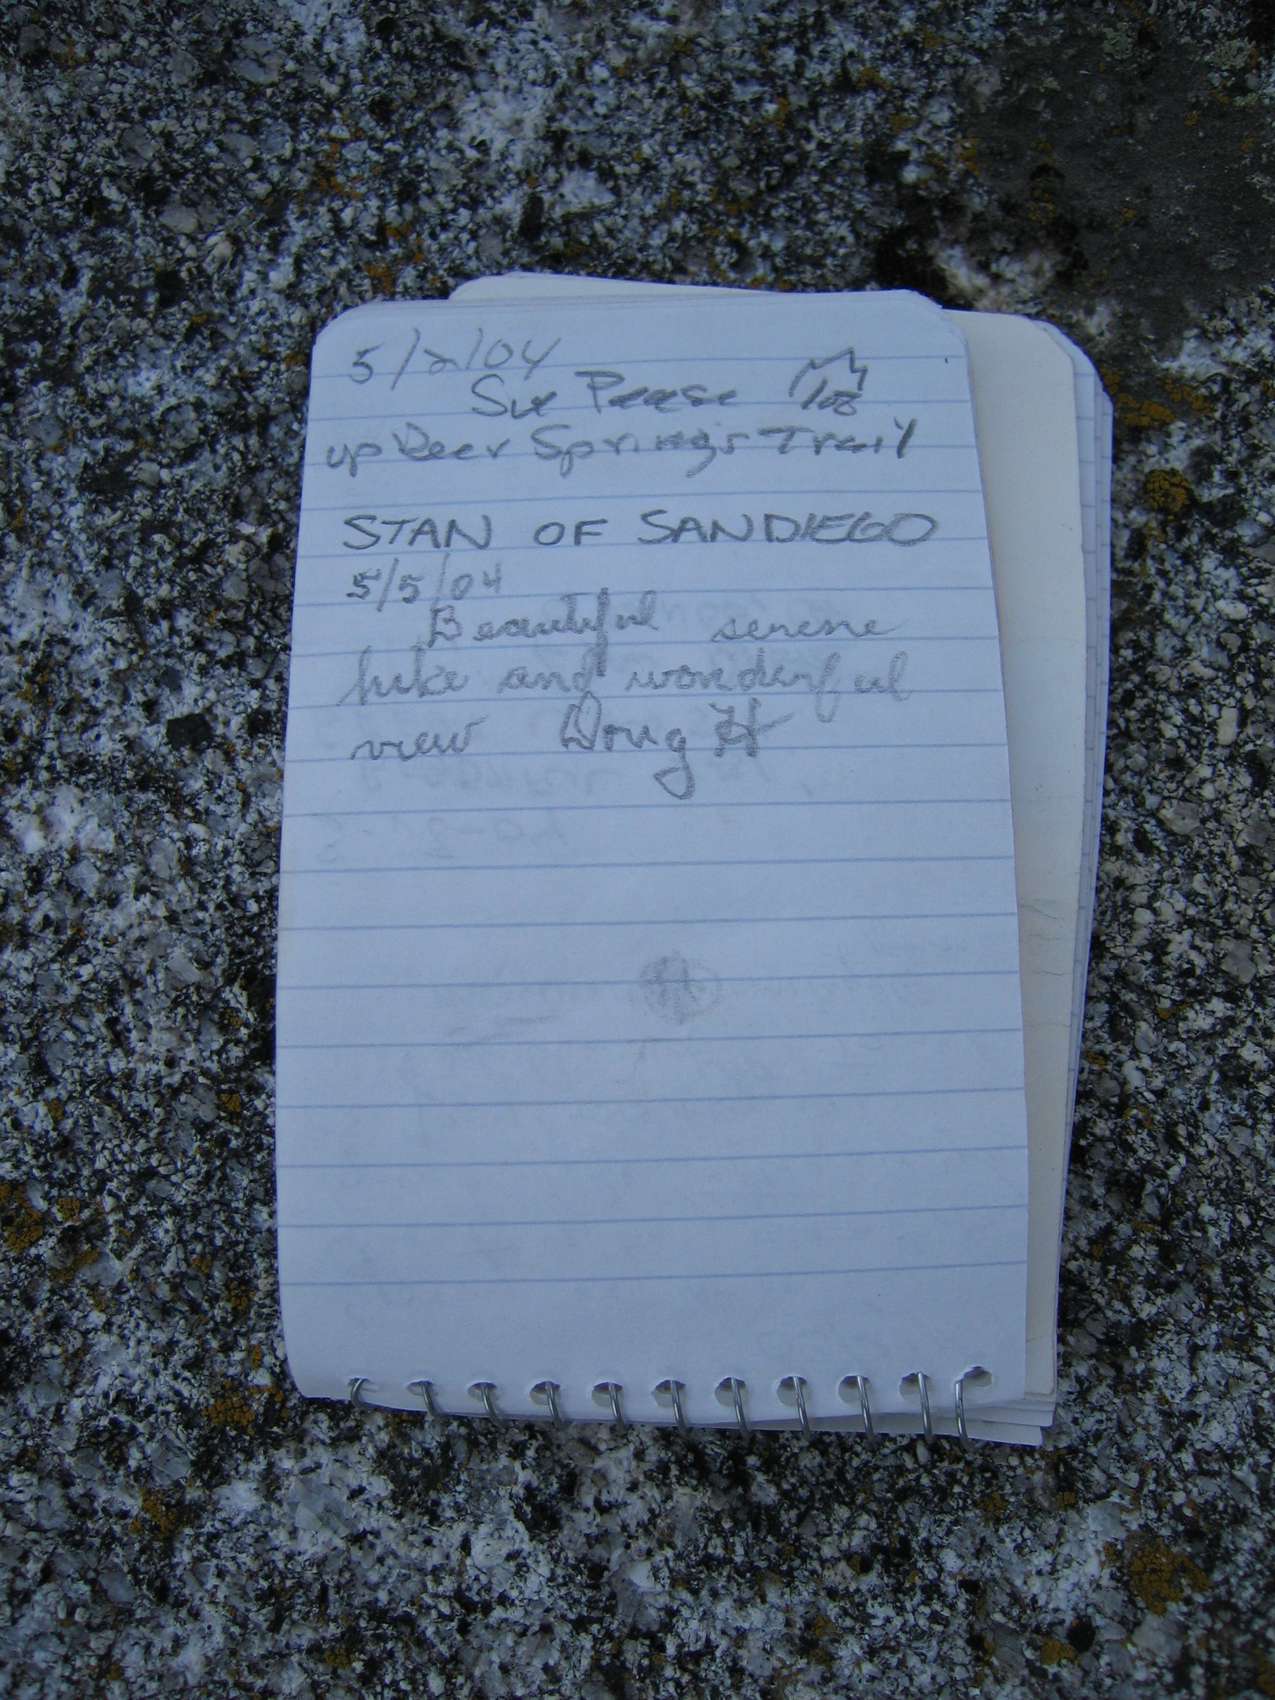 5/2/04
Sue Pease 100
up Deer Springs Trail
STAN OF SAN DIEGO
5/5/04
Beautiful serene
hike and wonderful
view Doug H